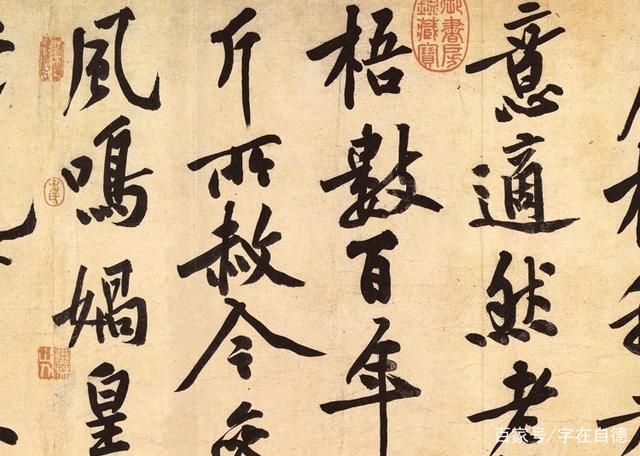 意適然老
梧數百年
斤所赦今
風鳴媧皇
御書房鑑藏寶
百家号/字在自德